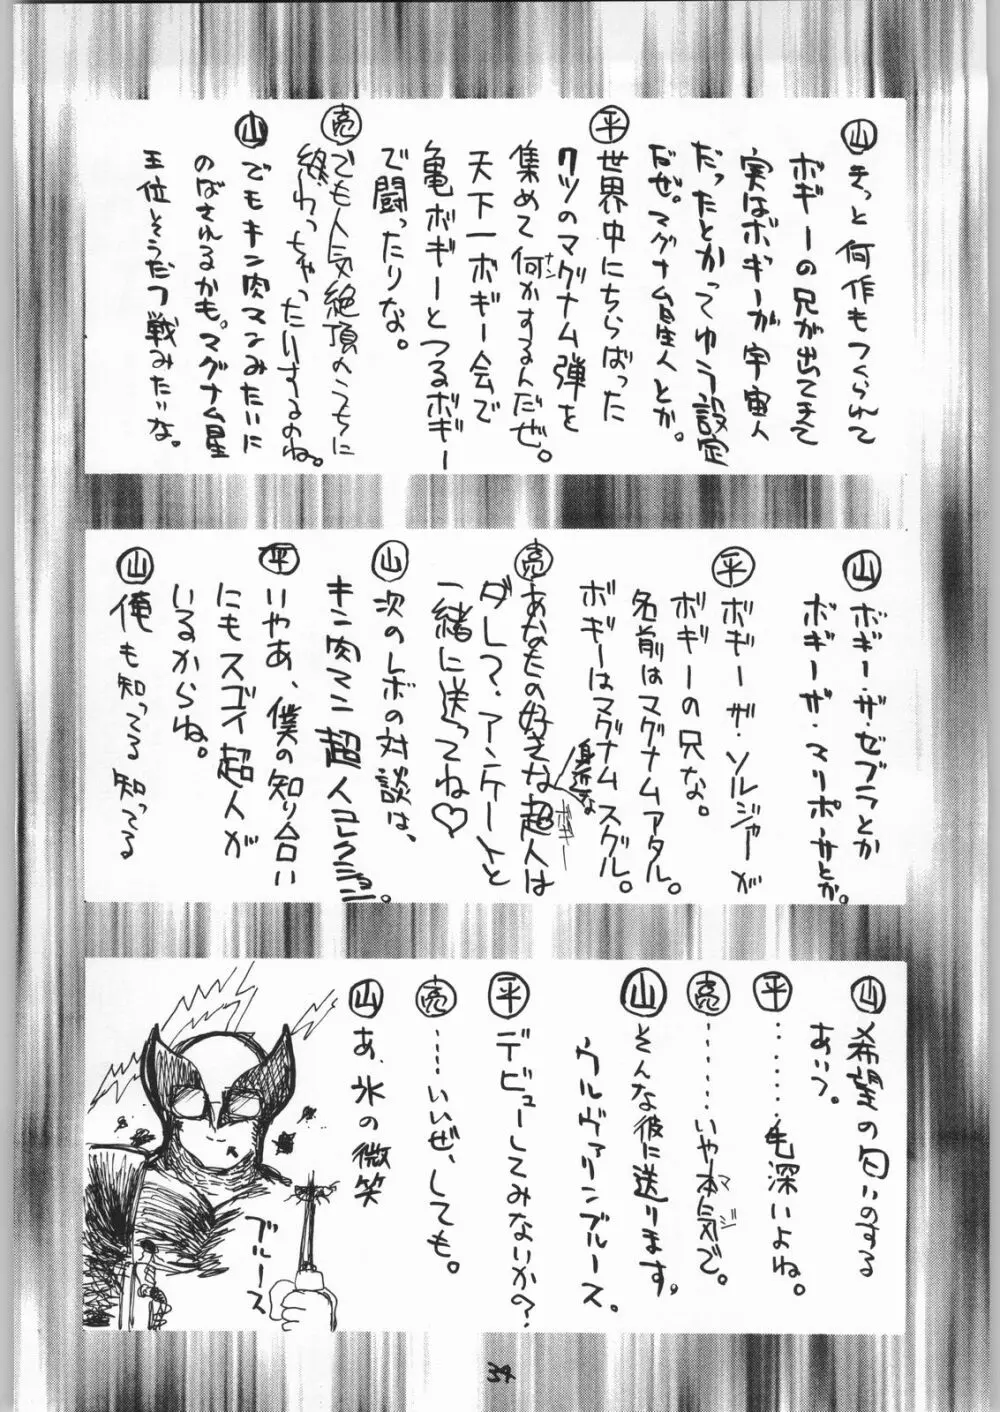 ㊤山 きっと何作もつくられて
ボギーの兄が出てきて
実はボギーが宇宙人
だったとかってゆう設定
だぜ。マグナム星人とか。
平 世界中にちらばった
クツのマグナム弾を
集めて何かするんだぜ。
ナン
天下一ボギー会で
亀ボギーとつるボギー
で闘ったりな。
亮 でも人気絶頂のうちに
終わっちゃったりするのね。
山 でもキン肉マンみたいに
のばされるかも。マグナム星
王位そうだつ戦みたいな。
山 ボギー・ザ・ゼブラとか
ボギーザ・マリポーサとか。
平 ボギー・ザ・ソルジャーが
ボギーの兄な。
名前はマグナムアタル。
ボギーはマグナムスグル。
亮 あなたの好きな超人は
身近な
ボギー
ダレ?アンケートと
一緒に送ってね♡
山 次のレボの対談は、
キン肉マン超人コレクション。
平 いやあ、僕の知り合い
にもスゴイ超人が
いるからね。
山 俺も知ってる知ってる
山 希望の匂いのする
あいつ。
平 ………毛深いよね。
亮 ………いや本気で。
マジ
山 そんな彼に送ります。
ウルヴァリンブルース。
平 デビューしてみないか?
亮 ……いいぜ、しても。
山 あ、氷の微笑
ブルース
34